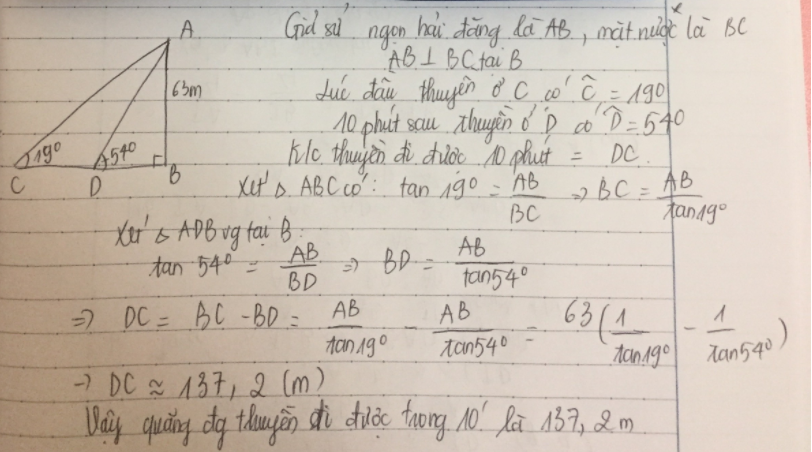 Giả sử ngọn hải đăng là AB, mặt nước là BC
AB ⊥ BC tại B
Lúc đầu thuyền ở C có Ĉ = 19°
10 phút sau thuyền ở D có D̂ = 54°
K/c thuyền đi được 10 phút = DC.
A
63m
19°
54°
C
D
B
Xét △ ABC có: tan 19° = AB/BC => BC = AB/tan19°
Xét △ ADB vg tại B:
tan 54° = AB/BD => BD = AB/tan54°
=> DC = BC - BD = AB/tan19° - AB/tan54° = 63(1/tan19° - 1/tan54°)
-> DC ≈ 137,2 (m)
Vậy quãng đg thuyền đi được trong 10' là 137,2 m